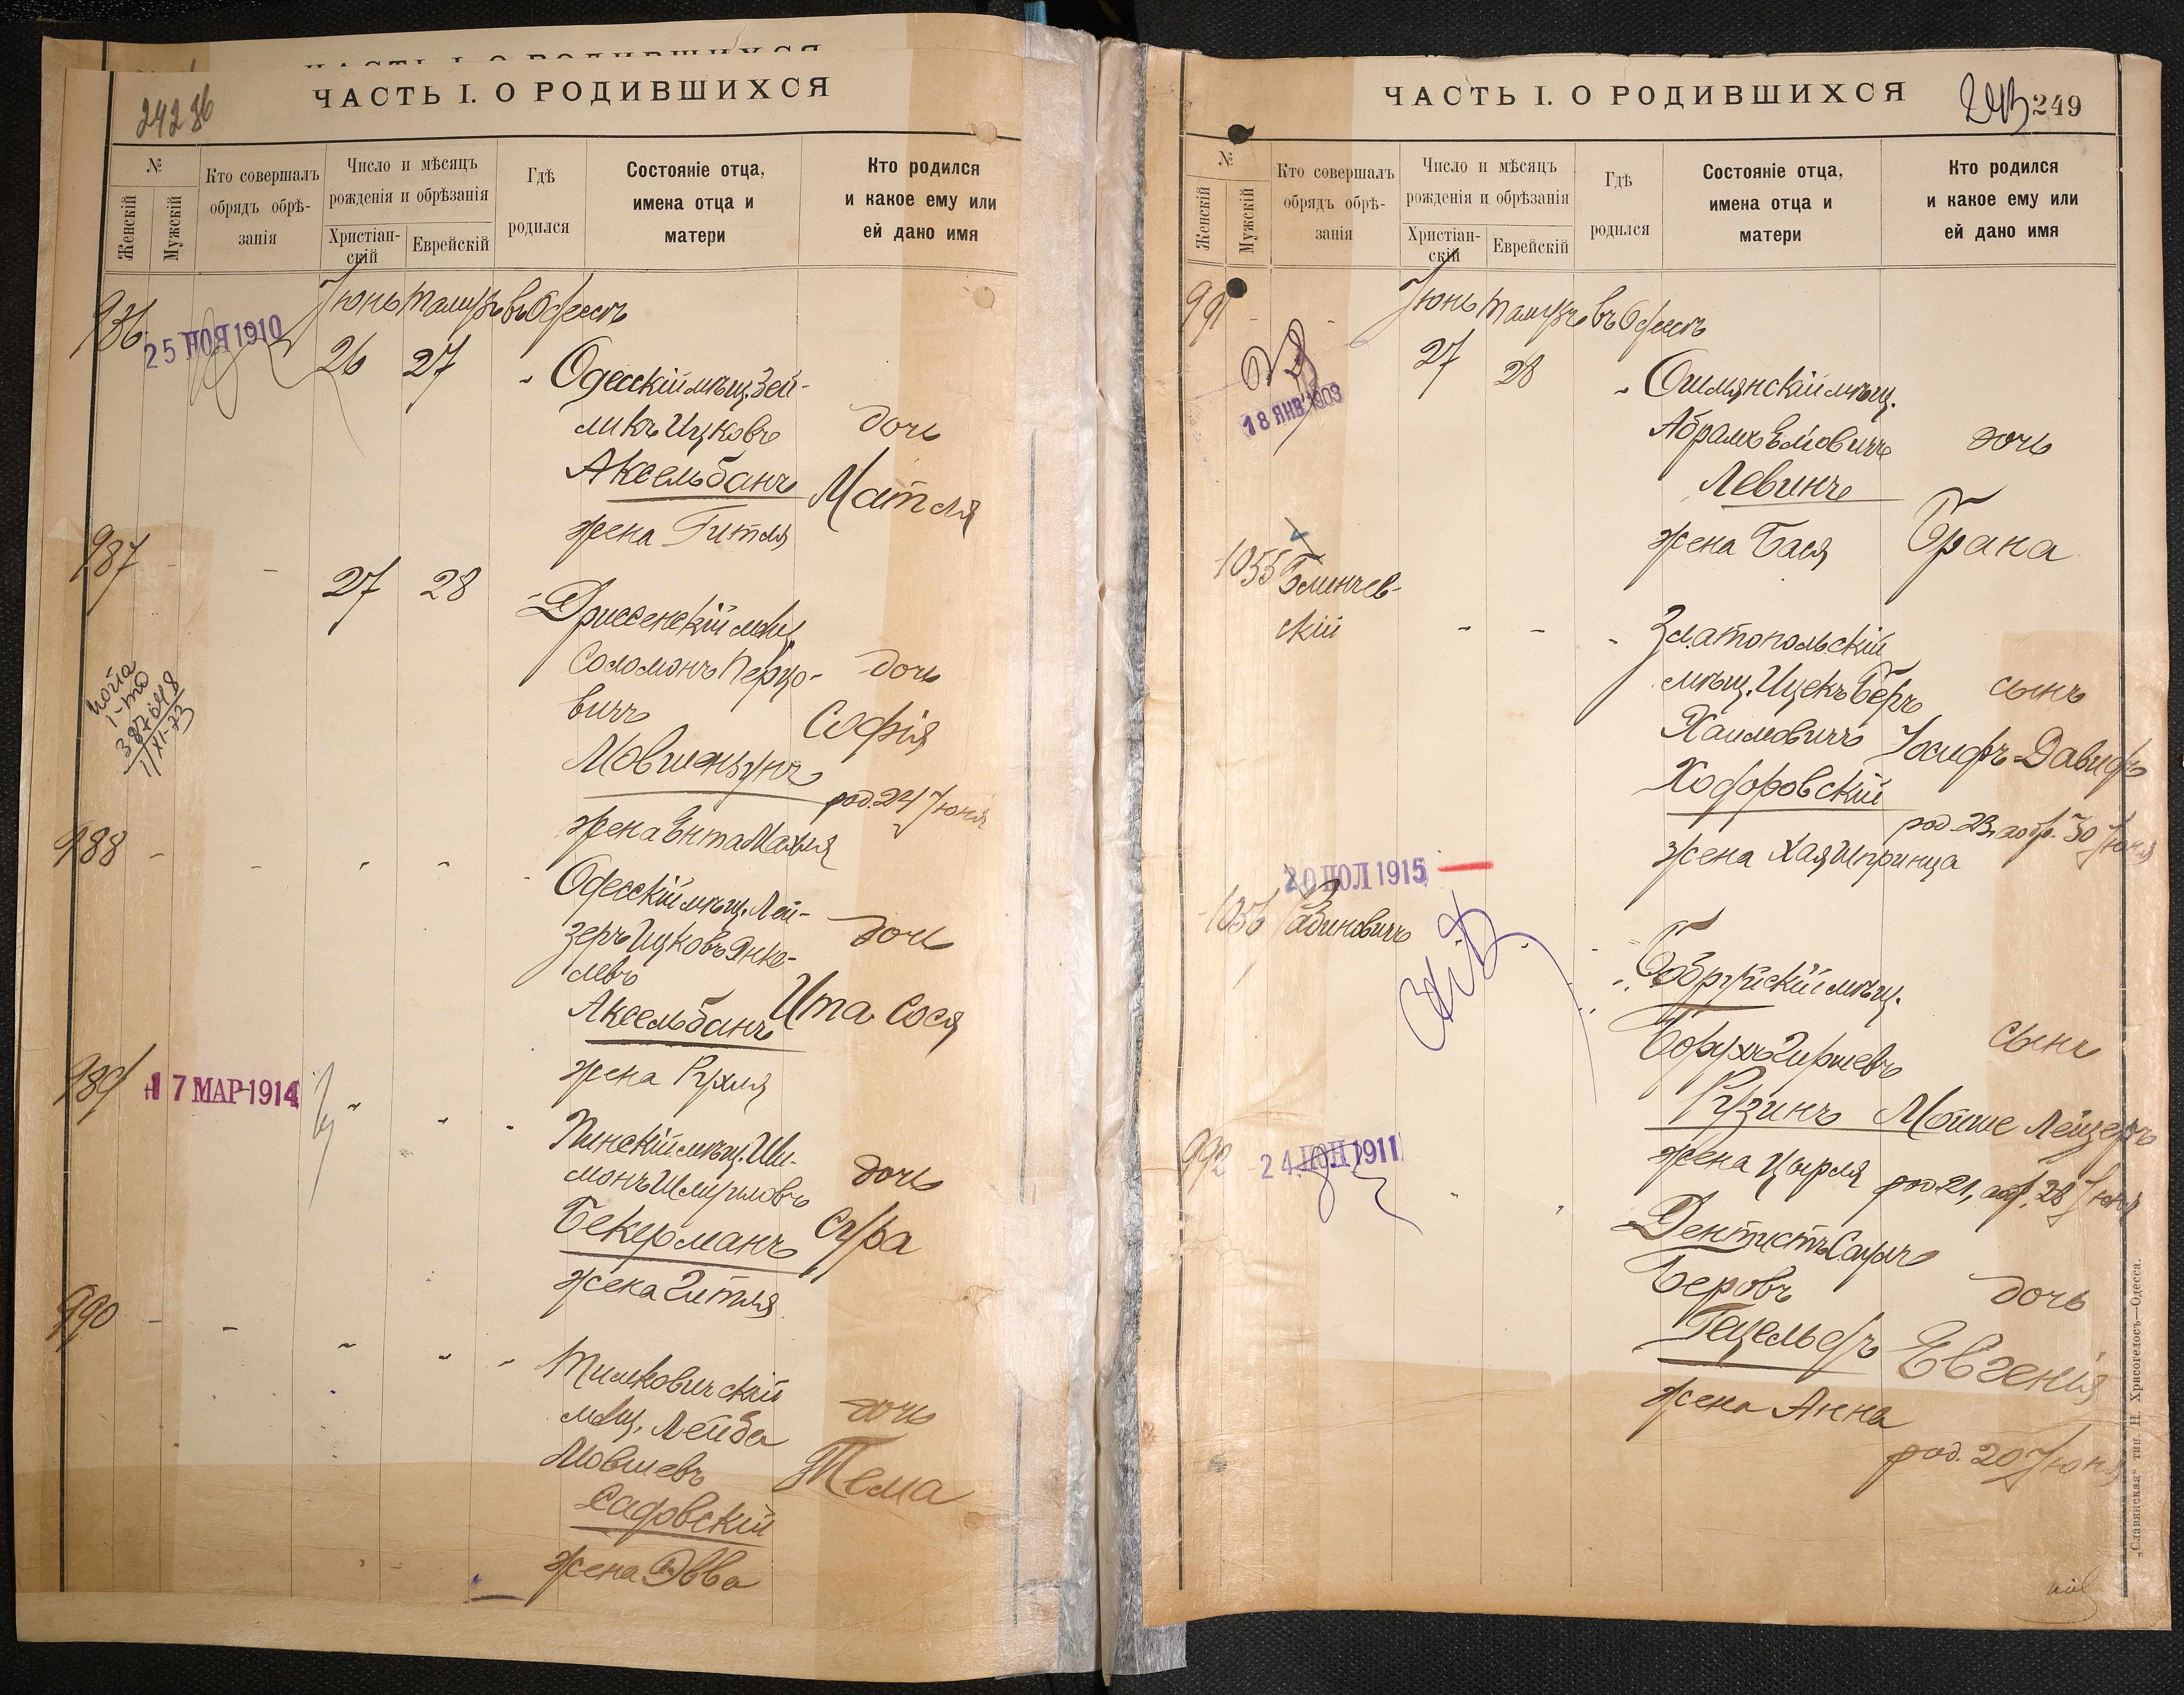 ЧАСТЬ I. О РОДИВШИХСЯ
242 86
ЧАСТЬ I. О РОДИВШИХСЯ
№
Женскій
Мужскій
Кто совершалъ
обрядъ обрѣ-
занія
Число и мѣсяцъ
рожденія и обрѣзанія
Христіан-
скій
Еврейскій
Гдѣ
родился
Состояніе отца,
имена отца и
матери
Кто родился
и какое ему или
ей дано имя
Іюнь Тамузъ въ Одессѣ
986
25 НОЯ 1910
26 27 " Одесскій мѣщ. Зей-
ликъ Ицковъ дочь
Аксельбантъ Матля
жена Гитля
987 - -
27 28 " Дриссенскій мѣщ.
Соломонъ Перцо- дочь
вичъ Софія
Мовшензонъ
род. 24 Іюня
жена Ента Махля
1-то
387648
1/XI-73
988 - - " " "
Одесскій мѣщ. Лей-
зеръ Ицковъ Янке- дочь
левъ
Аксельбантъ Ита Сося
жена Рухля
989 17 МАР 1914 " " "
Пинскій мѣщ. Ши-
монъ Шмуиловъ дочь
Бекерманъ Сура
жена Гитля
990 - - " " "
Тимковичскій
мѣщ. Лейба дочь
Мовшевъ Тема
Садовскій
жена Эвва
ЧАСТЬ I. О РОДИВШИХСЯ
243 249
№
Женскій
Мужскій
Кто совершалъ
обрядъ обрѣ-
занія
Число и мѣсяцъ
рожденія и обрѣзанія
Христіан-
скій
Еврейскій
Гдѣ
родился
Состояніе отца,
имена отца и
матери
Кто родился
и какое ему или
ей дано имя
991 - - Іюнь Тамузъ въ Одессѣ
18 ЯНВ 1903
27 28 " Ошмянскій мѣщ.
Абрамъ Еліовичъ дочь
Левинъ
жена Бася Брана
1055 Блинчев-
скій - - " Златопольскій
мѣщ. Ицекъ Беръ сынъ
Хаимовичъ Іосифъ-Давидъ
Ходоровскій
род. 23, обр. 30 Іюня
жена Хая Шпринца
20 ІЮЛ 1915
1056 Рабиновичъ
" " " Бобруйскій мѣщ.
Борухъ Гиршевъ сынъ
Рузинъ Мойше Лейзеръ
жена Цырля род. 21, обр. 28 Іюня
992 24 ІЮН 1911
" " Дентистъ Саулъ
Беровъ дочь
Гецельдъ Евгенія
жена Анна
род. 20 Іюня
„Славянская“ тип. Н. Хрисогелосъ—Одесса.